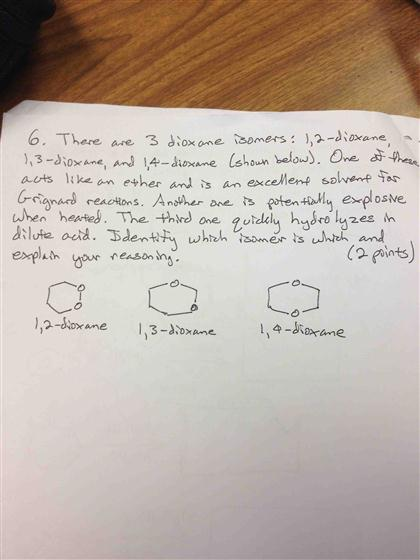 6. There are 3 dioxane isomers: 1,2-dioxane,
1,3-dioxane, and 1,4-dioxane (shown below). One of these
acts like an ether and is an excellent solvent for
Grignard reactions. Another one is potentially explosive
when heated. The third one quickly hydrolyzes in
dilute acid. Identify which isomer is which and
explain your reasoning. (2 points)
O O O O
O O
1,2-dioxane 1,3-dioxane 1,4-dioxane